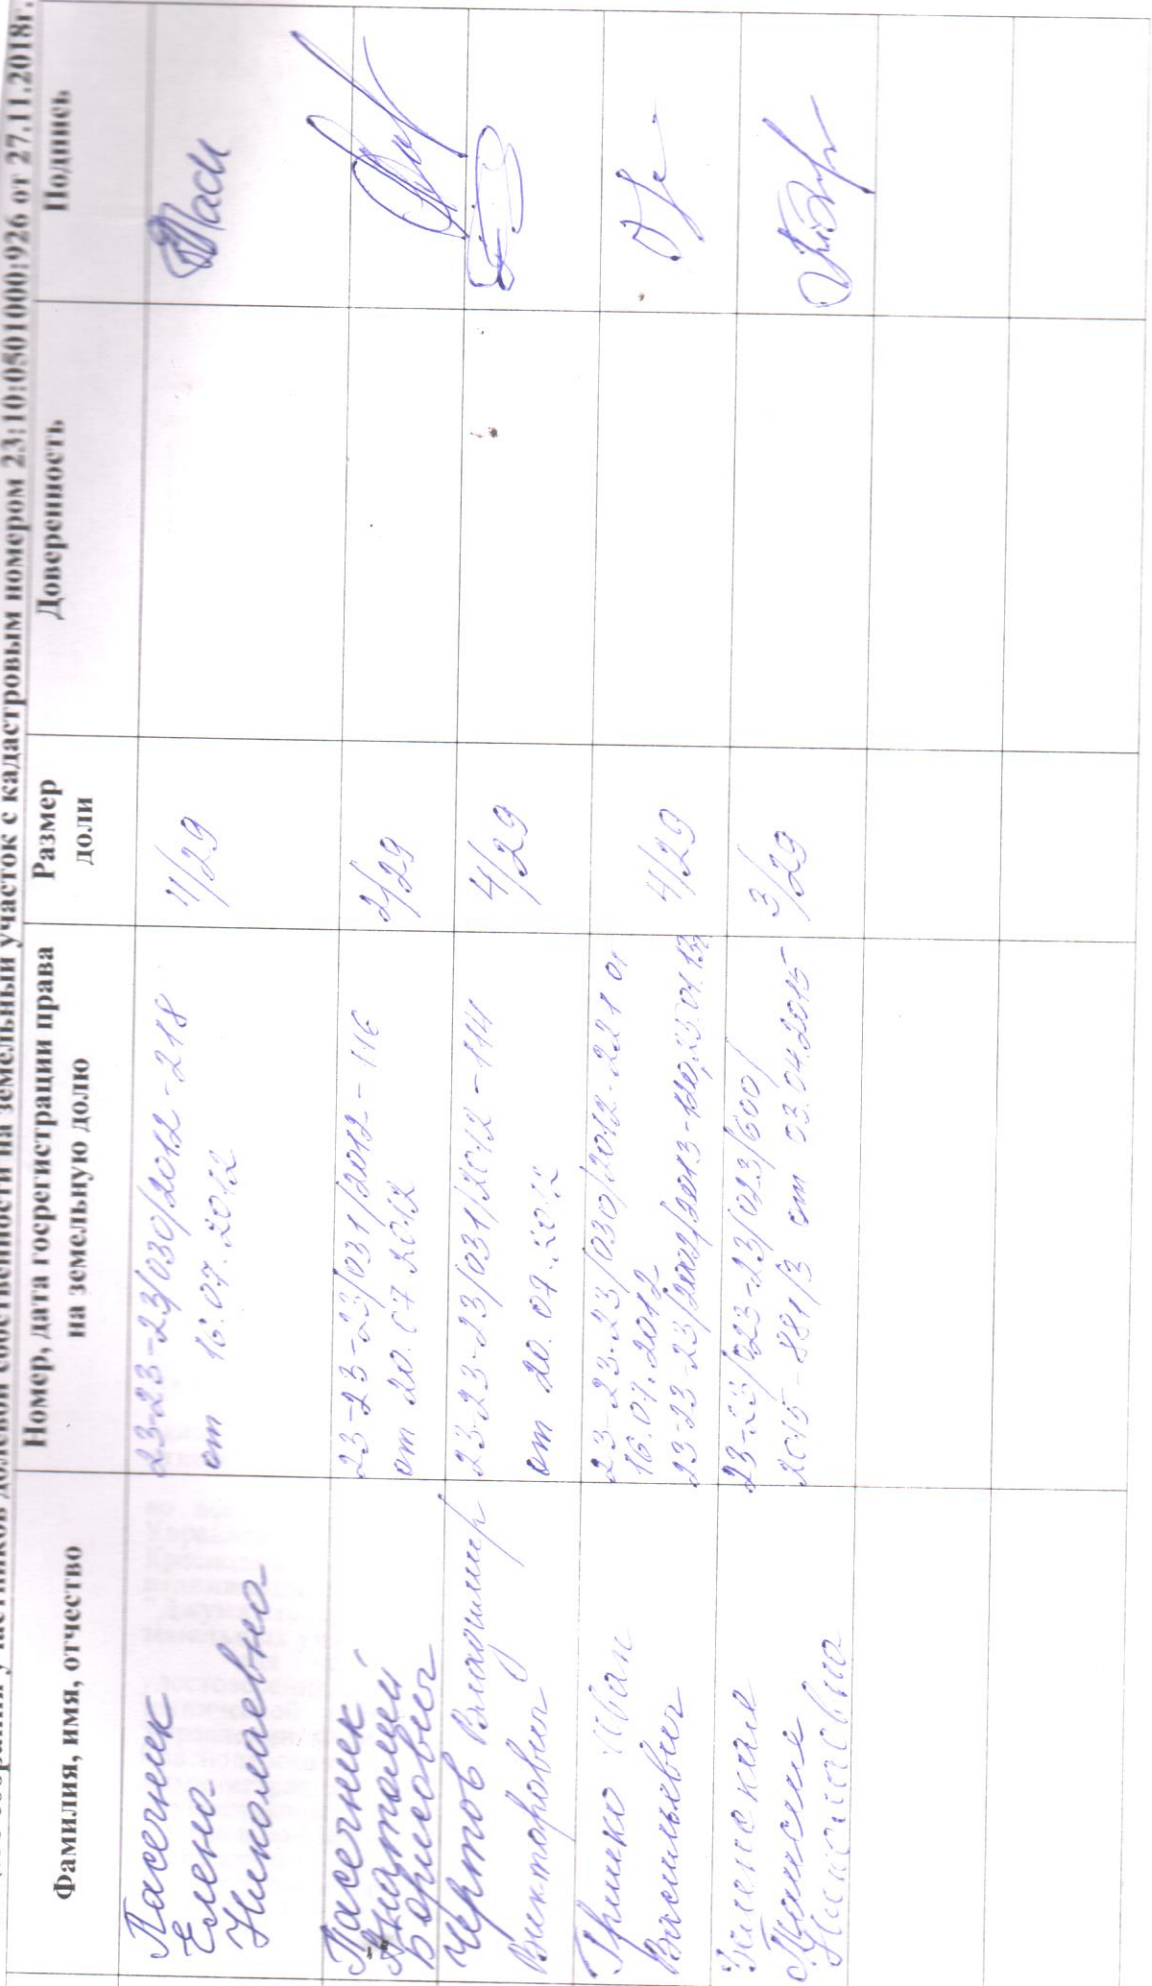 собрания участников долевой собственности на земельный участок с кадастровым номером 23:10:0501000:926 от 27.11.2018г.
Фамилия, имя, отчество
Номер, дата госрегистрации права
на земельную долю
Размер
доли
Доверенность
Подпись
Пасечник
Елена
Николаевна
23-23-23/030/2012-218
от 16.07.2012
4/29
Пасечник
Анатолий
Борисович
23-23-23/031/2012-116
от 20.07.2012
2/29
Чертов Владимир
Викторович
23-23-23/031/2012-114
от 20.07.2012
4/29
Гришко Иван
Васильевич
23-23-23/030/2012-221 от
16.07.2012
23-23-23/2002/2013-120,
4/29
Таисия
Николаевна
23-23/023-23/023/600/
2015-881/3 от 03.04.2015
3/29